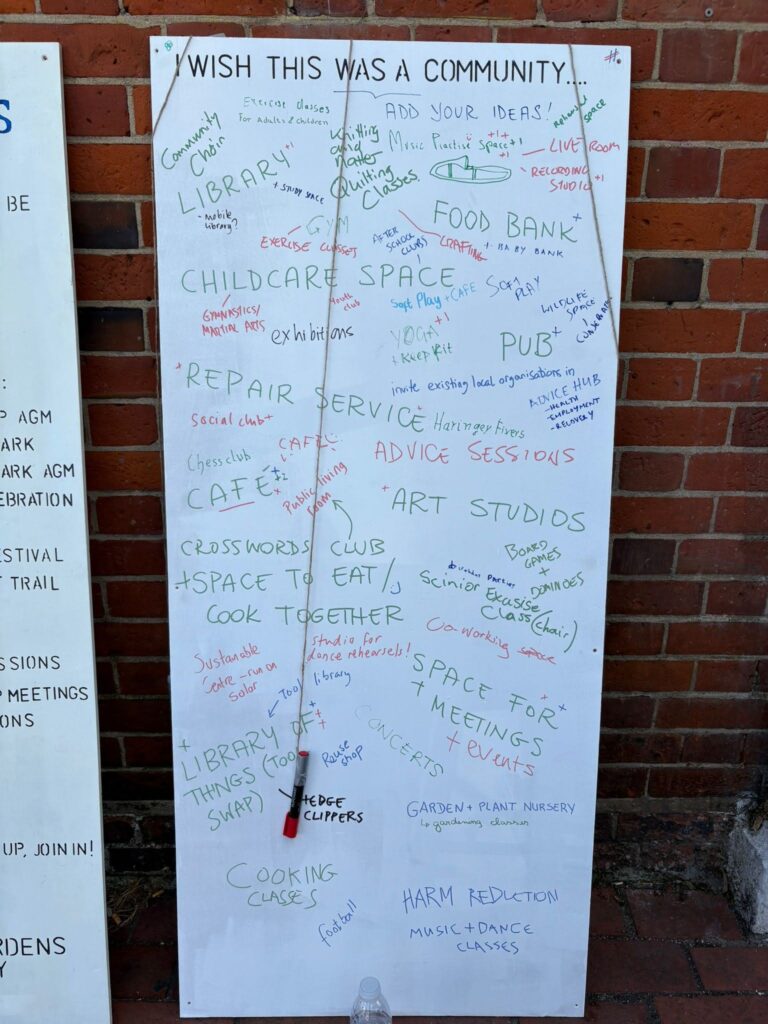 S
BE
:
P AGM
ARK
ARK AGM
EBRATION
ESTIVAL
T TRAIL
SSIONS
P MEETINGS
ONS
UP, JOIN IN!
RDENS
Y
I WISH THIS WAS A COMMUNITY....
#
ADD YOUR IDEAS!
Exercise classes
For Adults & children
rehearsal
space
Community
Choir
Knitting
and
natter
Quilting
Classes
Music Practise Space +1
+1
+1
+1
LIVE ROOM
RECORDING
STUDIO +1
LIBRARY +1
+ STUDY SPACE
- mobile
library?
GYM
EXERCISE CLASSES
AFTER
SCHOOL
CLUBS
CRAFTING
FOOD BANK +
+ BABY BANK
CHILDCARE SPACE
GYMNASTICS/
MARTIAL ARTS
Youth
club
Soft Play + CAFE
SOFT
PLAY
WILDLIFE
SPACE
exhibitions
YOGA +1
+ Keep Fit
PUB +
invite existing local organisations in
+ REPAIR SERVICE
ADVICE HUB
- HEALTH
- EMPLOYMENT
- RECOVERY
Social club +
Haringey Fivers
Chess club
CAFE
ADVICE SESSIONS
CAFÉ
+2
+
Public living
room
+ ART STUDIOS
CROSSWORDS CLUB
+ SPACE TO EAT/
COOK TOGETHER
BOARD
GAMES
+
DOMINOES
Scinior Excasise
Class (chair)
Co-working space
Sustainable
Centre - run on
Solar
Studio for
dance rehearsels!
Tool library
SPACE FOR
+ MEETINGS
+ +
+ events
+ LIBRARY OF
THINGS (TOOL
SWAP)
+ +
+
Reuse
shop
CONCERTS
+ EDGE
CLIPPERS
GARDEN + PLANT NURSERY
↳ gardening classes
COOKING
CLASSES
football
HARM REDUCTION
MUSIC + DANCE
CLASSES